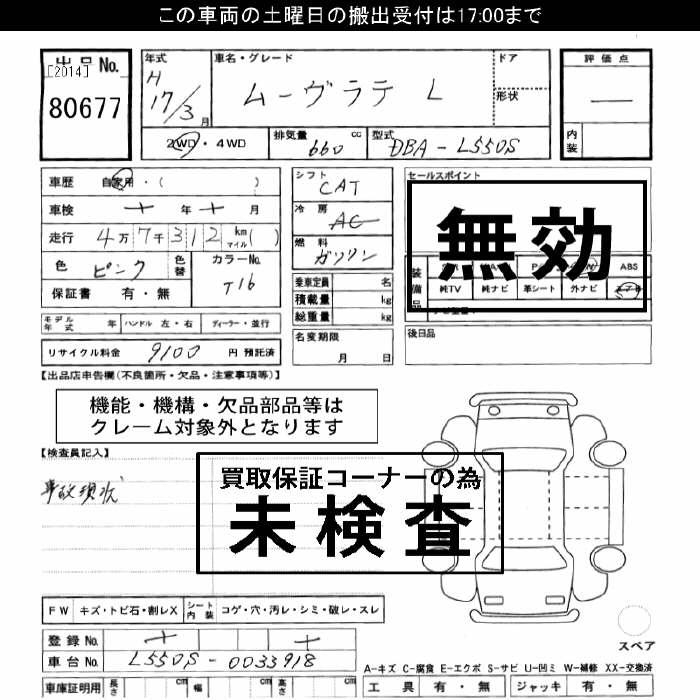 この車両の土曜日の搬出受付は17:00まで
出品No.
[2014]
80677
年式
H 17/3 月
車名・グレード
ムーヴラテ L
ドア
形状
評価点
—
内装
2WD・4WD
排気量 660 cc
型式 DBA-L550S
車歴 自家用・( )
車検 年 月
走行 4万7千312 km マイル ( )
色 ピンク 色替 カラーNo. T16
保証書 有・無
シフト CAT
冷房 AC
燃料 ガソリン
乗車定員 名
積載量 kg
総重量 kg
セールスポイント
無効
装備品
ABS
純TV 純ナビ 革シート 外ナビ
モデル年式 年 ハンドル 左・右 ディーラー・並行
リサイクル料金 9100 円 預託済
名変期限
月 日
後日品
【出品店申告欄(不良箇所・欠品・注意事項等)】
機能・機構・欠品部品等は
クレーム対象外となります
【検査員記入】
事故現状
買取保証コーナーの為
未検査
FW キズ・トビ石・割レX シート内装 コゲ・穴・汚レ・シミ・破レ・スレ
登録No.
車台No. L550S-0033918
車庫証明用 長さ cm 幅 cm 高さ cm
スペア
A-キズ C-腐食 E-エクボ S-サビ U-凹ミ W-補修 XX-交換済
工具 有・無 ジャッキ 有・無